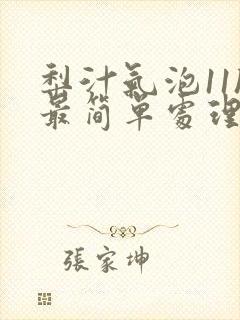 梨汁氣泡11
最簡單處理
張家坤